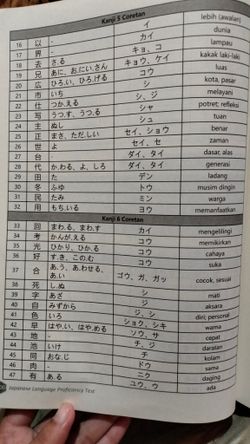 Kanji 5 Coretan
16 以 - イ lebih (awalan)
17 界 - カイ dunia
18 去 さ.る キョ、コ lampau
19 兄 あに、お.にい.さん キョウ、ケイ kakak laki-laki
20 広 ひろ.い、ひろ.げる コウ
21 市 いち シ kota, pasar
22 仕 つか.える シ、ジ melayani
23 写 うつ.す、うつ.る シャ potret; refleksi
24 主 ぬし シュ tuan
25 正 まさ、ただ.しい セイ、ショウ benar
26 世 よ セイ、セ zaman
27 台 - ダイ、タイ dasar, alas
28 代 か.わる、よ、しろ ダイ、タイ generasi
29 田 た デン ladang
30 冬 ふゆ トウ musim dingin
31 民 たみ ミン warga
32 用 もち.いる ヨウ memanfaatkan
Kanji 6 Coretan
33 回 まわ.る、まわ.す カイ mengelilingi
34 考 かんが.える コウ memikirkan
35 光 ひかり、ひか.る コウ cahaya
36 好 す.き、この.む コウ suka
37 合 あ.う、あ.わせる、あ.い ゴウ、ガ、ガッ cocok, sesuai
38 死 し.ぬ シ mati
39 字 あざ ジ aksara
40 自 みずから ジ、シ diri; personal
41 色 いろ ショク、シキ warna
42 早 はや.い、はや.める ソウ、サ cepat
43 地 - チ、ジ daratan
44 池 いけ チ kolam
45 同 おな.じ ドウ sama
46 肉 - ニク daging
47 有 あ.る ユウ、ウ ada
Japanese Language Proficiency Test